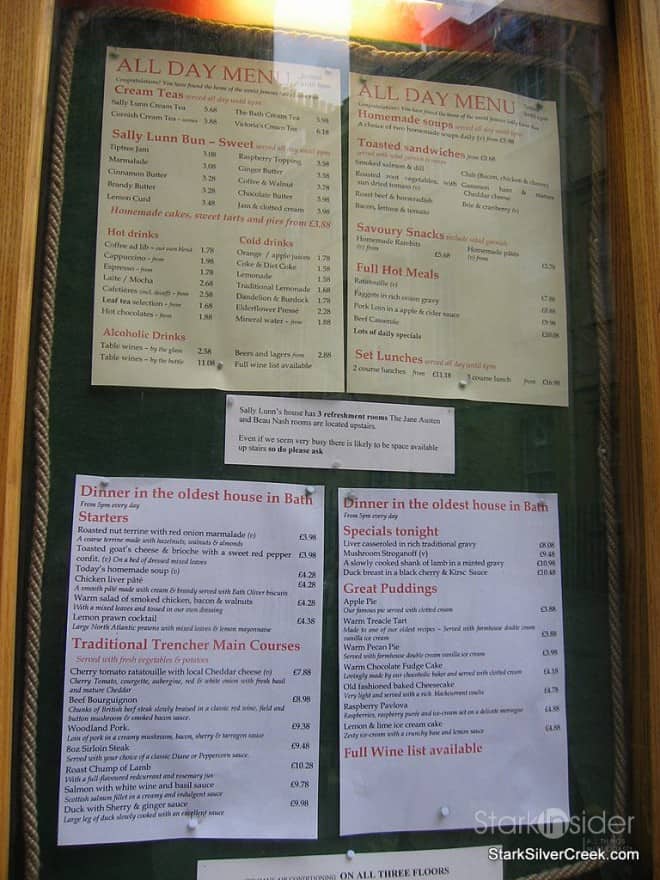 ALL DAY MENU
Congratulations! You have found the home of the world famous
Cream Teas served all day until 6pm
Sally Lunn Cream Tea 5.68
Cornish Cream Tea – 3.88
The Bath Cream Tea 5.98
Victoria's Cream Tea 6.18
Sally Lunn Bun – Sweet served all day until 6pm
Tiptree Jam 3.08
Marmalade 3.08
Cinnamon Butter 3.28
Brandy Butter 3.28
Lemon Curd 3.48
Raspberry Topping 3.58
Ginger Butter 3.58
Coffee & Walnut 3.28
Chocolate Butter 3.98
Jam & clotted cream 3.98
Homemade cakes, sweet tarts and pies from £3.88
Hot drinks
Coffee ad lib – our own blend 1.78
Cappuccino – from 1.98
Espresso – from 1.78
Latte / Mocha 2.68
Cafetières (incl. decaff) – from 2.58
Leaf tea selection – from 1.68
Hot chocolates – from 1.88
Cold drinks
Orange / apple juices 1.78
Coke & Diet Coke 1.58
Lemonade 1.58
Traditional Lemonade 1.68
Dandelion & Burdock 1.78
Elderflower Pressé 2.28
Mineral water – from 1.88
Alcoholic Drinks
Table wines – by the glass 2.58
Table wines – by the bottle 11.08
Beers and lagers from 2.88
Full wine list available
ALL DAY MENU
Congratulations! You have found the home of the world famous Sally Lunn Bun
Homemade soups served all day until 6pm
A choice of two homemade soups daily (v) from £3.98
Toasted sandwiches from £5.68
served with salad garnish to eaten
Smoked salmon & dill
Roasted root vegetables, with sun dried tomato (v)
Roast beef & horseradish
Bacon, lemons & tomato
Club (Bacon, chicken & cheese)
Gammon ham & mature
Cheddar cheese
Brie & cranberry (v)
Savoury Snacks include salad garnish
Homemade Rarebits
(v) from £5.68
Homemade pâtés
(v) from £5.78
Full Hot Meals
Ratatouille (v)
Faggots in rich onion gravy £7.88
Pork Loin in a apple & cider sauce £8.88
Beef Casserole £9.98
Lots of daily specials £10.08
Set Lunches served all day until 6pm
2 course lunches from £11.18
3 course lunch from £16.98
Sally Lunn's house has 3 refreshment rooms The Jane Austen
and Beau Nash rooms are located upstairs.
Even if we seem very busy there is likely to be space available
up stairs so do please ask
Dinner in the oldest house in Bath
From 5pm every day
Starters
Roasted nut terrine with red onion marmalade (v) £3.98
A coarse terrine made with hazelnuts, walnuts & almonds
Toasted goat's cheese & brioche with a sweet red pepper £3.98
confit. (v) On a bed of dressed mixed leaves
Today's homemade soup (v) £4.28
Chicken liver pâté £4.28
A smooth pâté made with cream & brandy served with Bath Oliver biscuits
Warm salad of smoked chicken, bacon & walnuts £4.28
With a mixed leaves and tossed in our own dressing
Lemon prawn cocktail £4.38
Large North Atlantic prawns with mixed leaves & lemon mayonnaise
Traditional Trencher Main Courses
Served with fresh vegetables & potatoes
Cherry tomato ratatouille with local Cheddar cheese (v) £7.88
Cherry Tomato, courgette, aubergine, red & white onion with fresh basil
and mature Cheddar
Beef Bourguignon £8.98
Chunks of British beef steak slowly braised in a classic red wine, field and
button mushroom & smoked bacon sauce.
Woodland Pork. £9.38
Loin of pork in a creamy mushroom, bacon, sherry & tarragon sauce
8oz Sirloin Steak £9.48
Served with your choice of a classic Diane or Peppercorn sauce.
Roast Chump of Lamb £10.28
With a full flavoured redcurrant and rosemary jus
Salmon with white wine and basil sauce £9.78
Scottish salmon fillet in a creamy and indulgent sauce
Duck with Sherry & ginger sauce £9.98
Large leg of duck slowly cooked with an excellent sauce
Dinner in the oldest house in Bath
From 5pm every day
Specials tonight
Liver casseroled in rich traditional gravy £8.08
Mushroom Stroganoff (v) £9.48
A slowly cooked shank of lamb in a minted gravy £10.98
Duck breast in a black cherry & Kirsc Sauce £10.48
Great Puddings
Apple Pie £3.88
Our famous pie served with clotted cream
Warm Treacle Tart £3.88
Made to one of our oldest recipes – Served with farmhouse double cream
vanilla ice cream
Warm Pecan Pie £3.98
Served with farmhouse double cream vanilla ice cream
Warm Chocolate Fudge Cake £4.18
Lovingly made by our chocoholic baker and served with clotted cream
Old fashioned baked Cheesecake £4.78
Very light and served with a rich blackcurrant coulis
Raspberry Pavlova £4.88
Raspberries, raspberry purée and ice-cream set on a delicate meringue
Lemon & lime ice cream cake £4.88
Zesty ice-cream with a crunchy base and lemon sauce
Full Wine list available
CONDITIONING ON ALL THREE FLOORS
StarkInsider
StarkSilverCreek.com